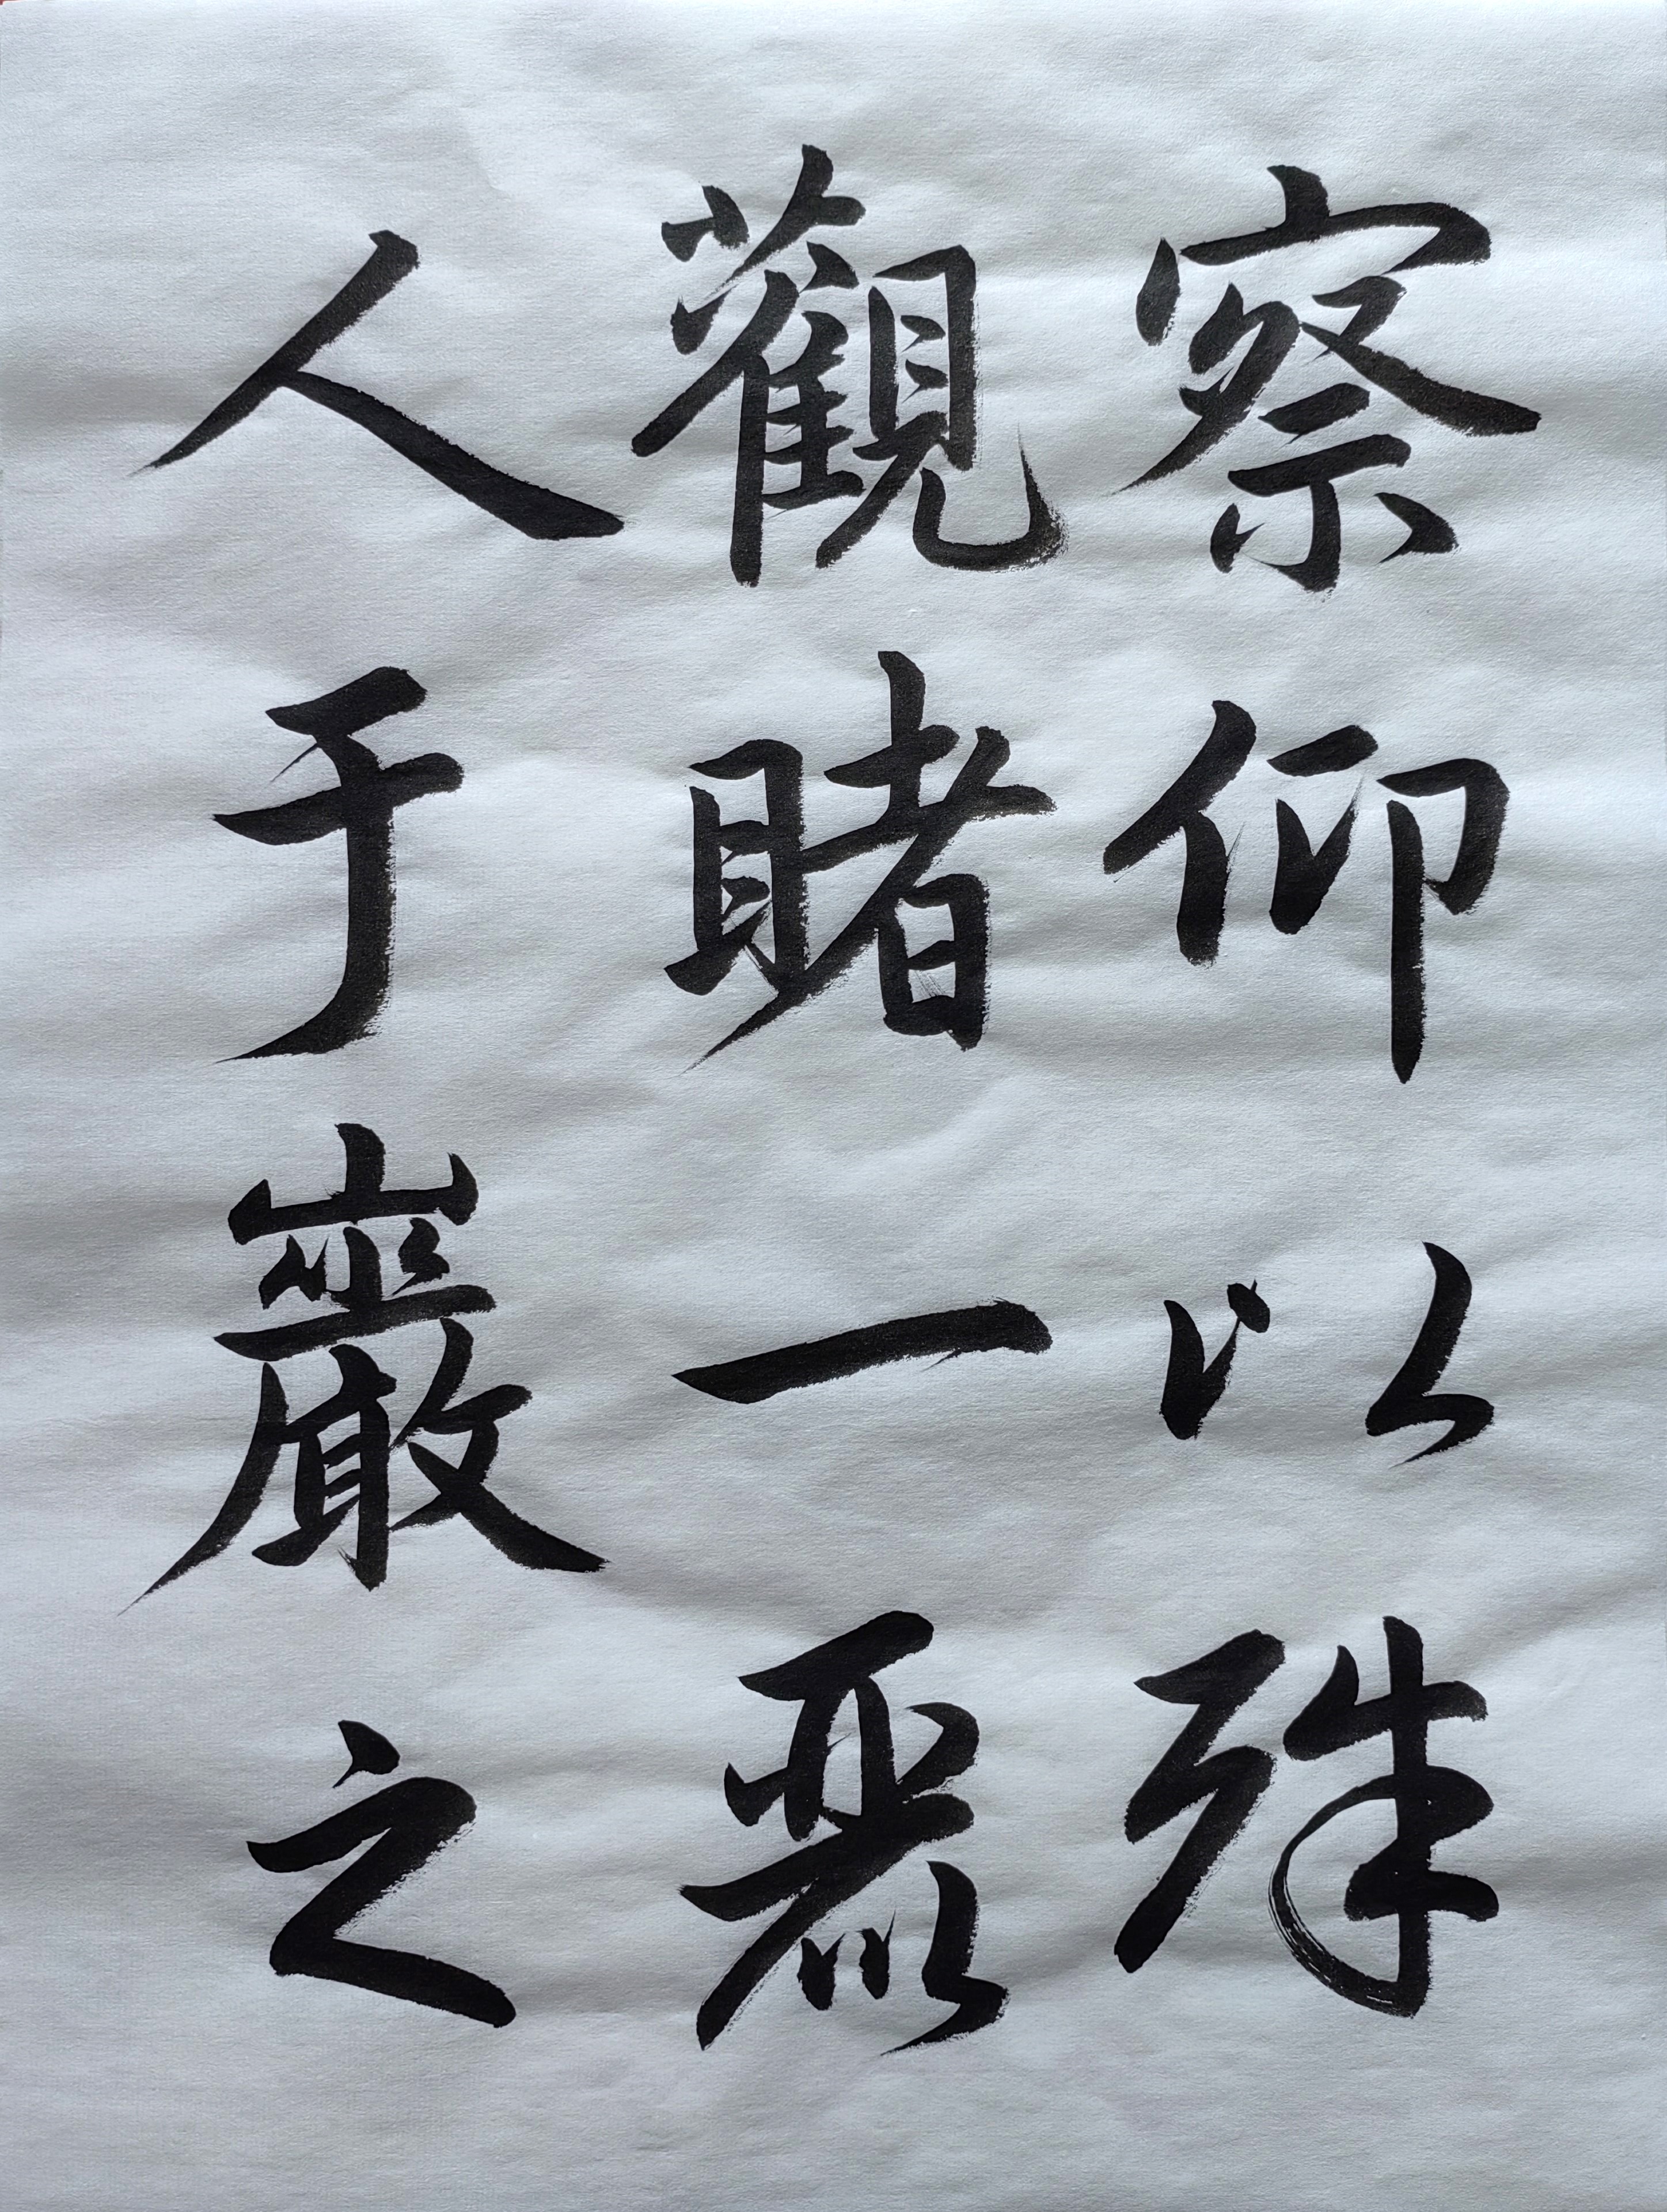 察仰以殊
觀睹一麗
人于巖之